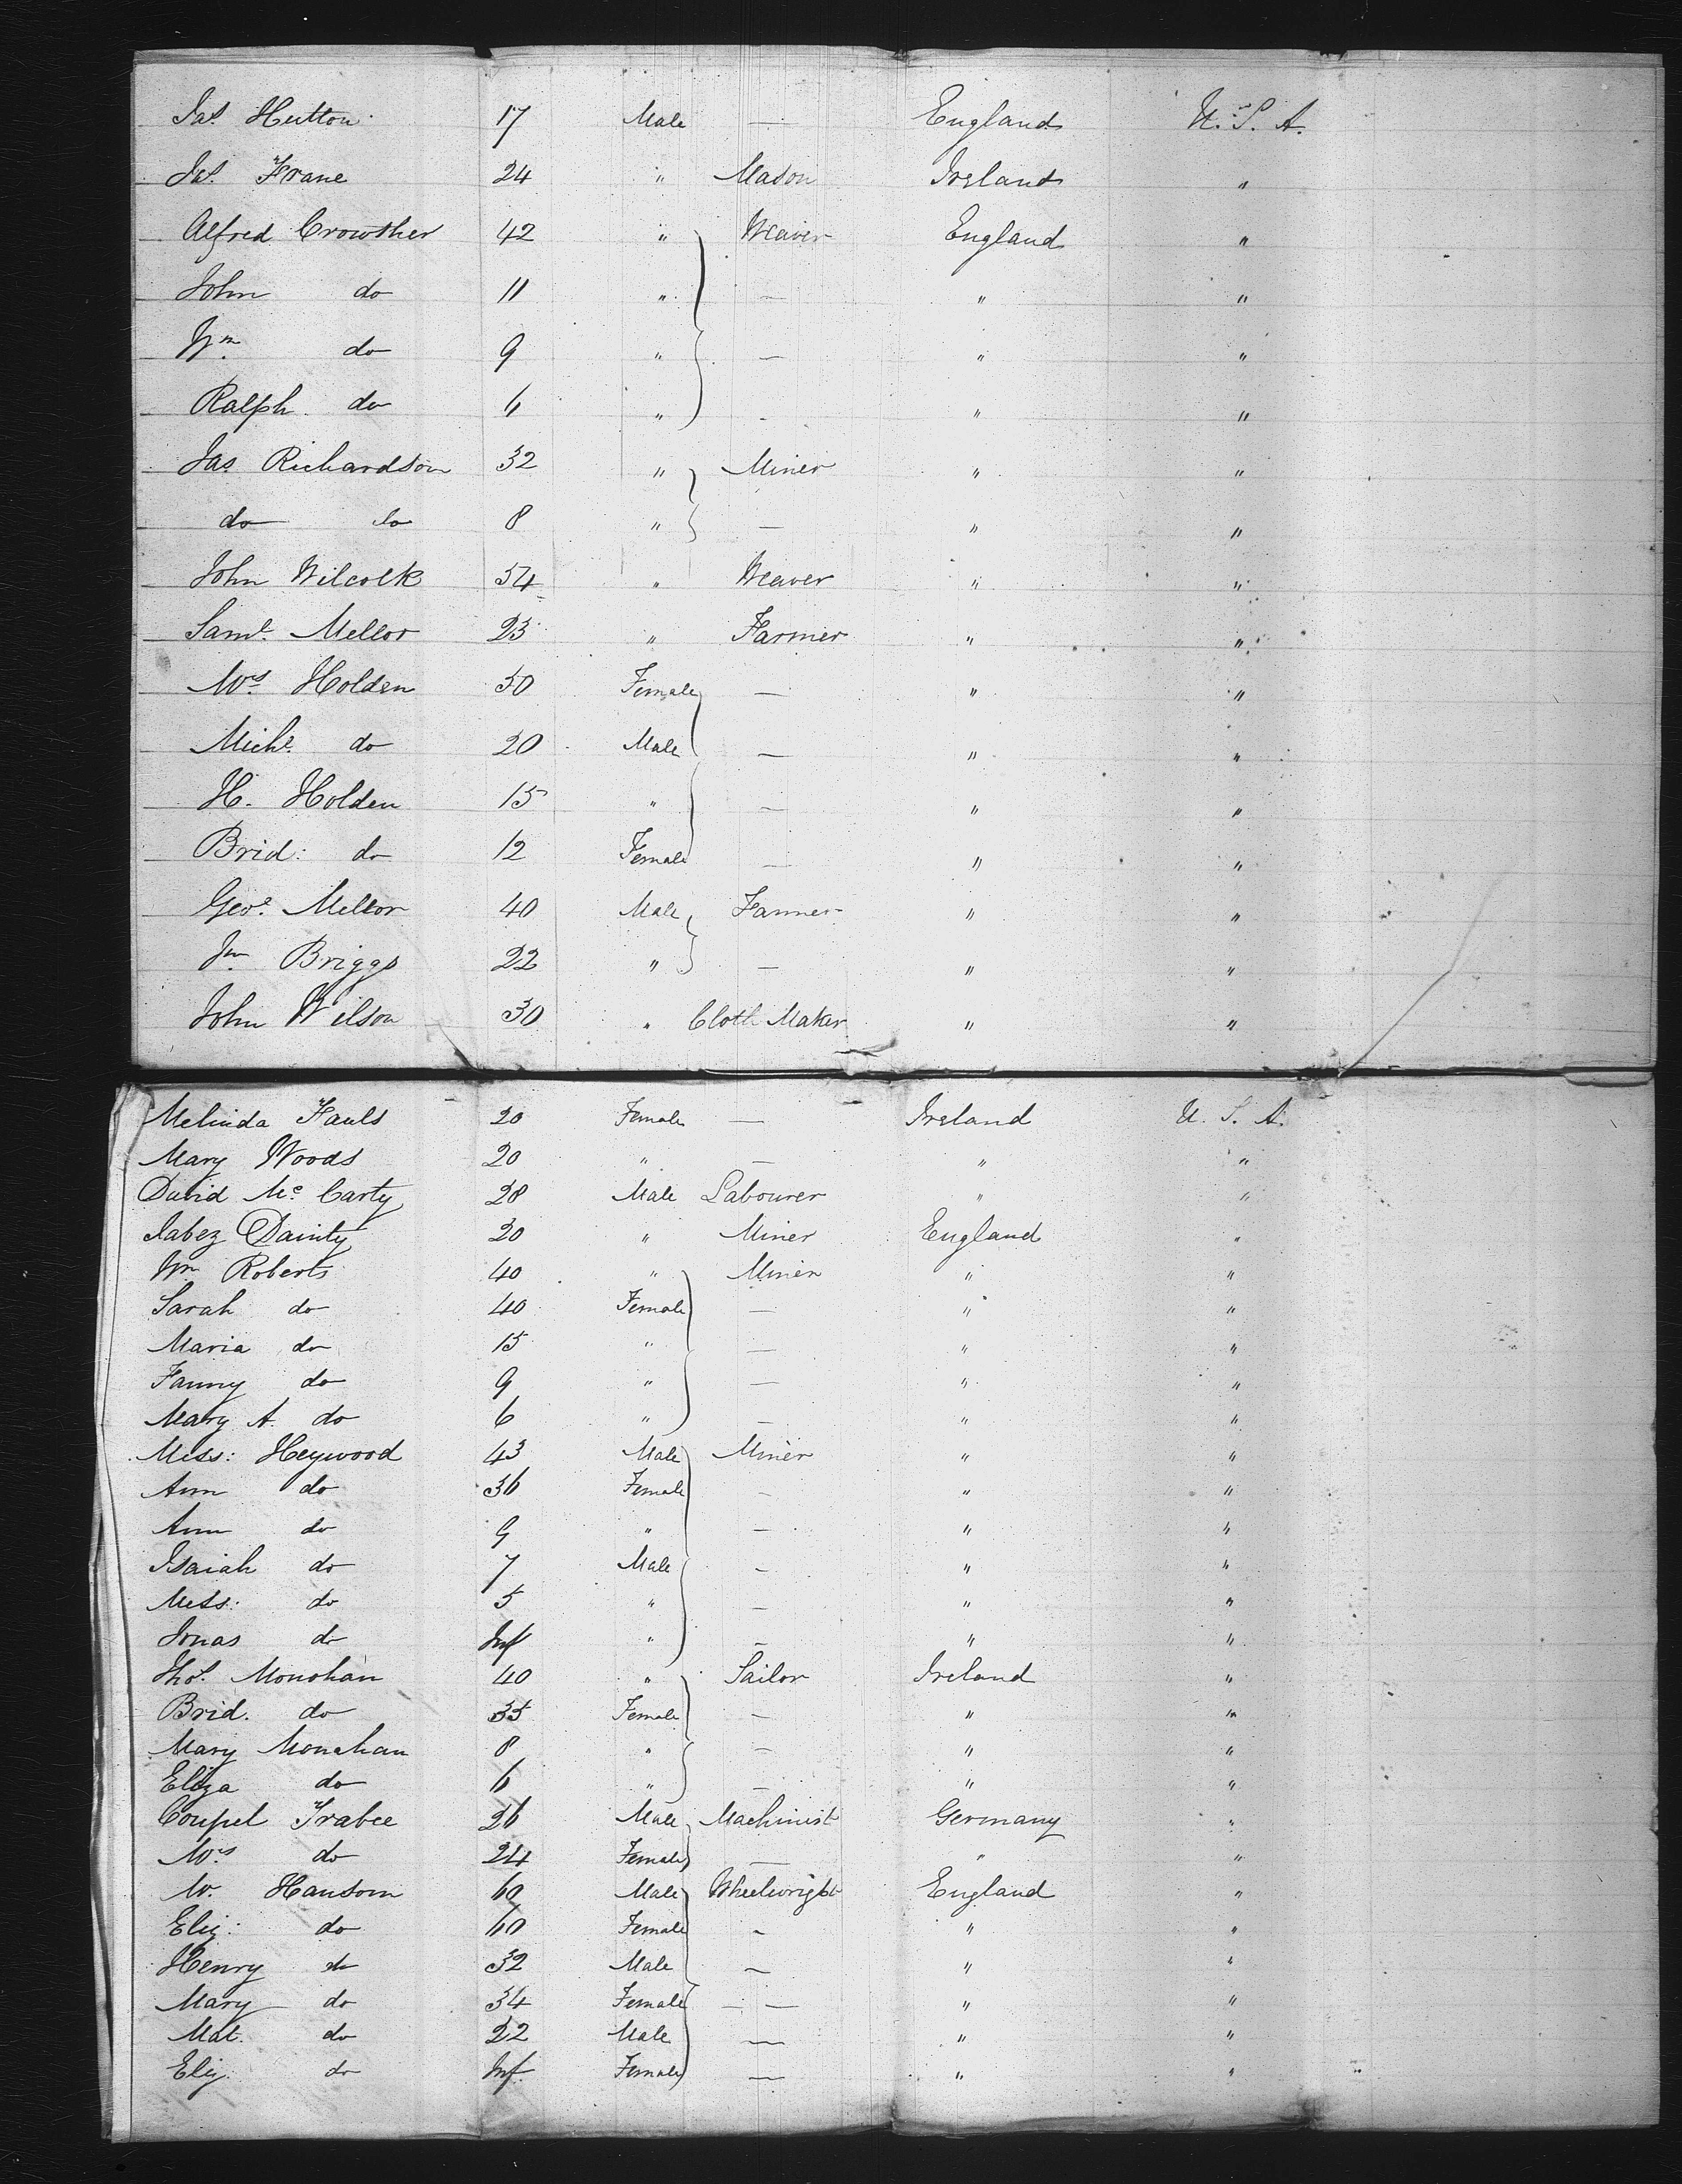 Jas. Hutton 17 Male — England U.S.A.
Jas. Frane 24 " Mason Ireland "
Alfred Crowther 42 " Weaver England "
John do 11 " — " "
Wm do 9 " — " "
Ralph do 6 " - " "
Jas Richardson 32 " Miner " "
do do 8 " — " "
John Wilcock 54 " Weaver " "
Saml. Mellor 23 " Farmer " "
Mrs Holden 50 Female — " "
Michl. do 20 Male — " "
H. Holden 15 " — " "
Brid: do 12 Female — " "
Geo. Mellor 40 Male Farmer " "
Jn Briggs 22 " — " "
John Wilson 30 " Cloth Maker " "
Melinda Fauls 20 Female — Ireland U.S.A.
Mary Woods 20 " — " "
David Mc Carty 28 Male Labourer " "
Jabez Dainty 20 " Miner England "
Wm Roberts 40 " Miner " "
Sarah do 40 Female — " "
Maria do 15 " — " "
Fanny do 9 " — " "
Mary A. do 6 " — " "
Mess: Heywood 43 Male Miner " "
Ann do 36 Female - " "
Ann do 9 " — " "
Isaiah do 7 Male - " "
Mess: do 5 " — " "
Jonas do Inf " — " "
Thos. Monohan 40 " Sailor Ireland "
Brid. do 35 Female — " "
Mary Monahan 8 " — " "
Eliza do 6 " — " "
Coupel Trabee 26 Male Machinist Germany "
Mrs do 24 Female — " "
W. Hansom 60 Male Wheelwright England "
Eliz: do 60 Female - " "
Henry do 32 Male — " "
Mary do 34 Female — — " "
Mat. do 22 Male — " "
Eliz. do Inf. Female — " "